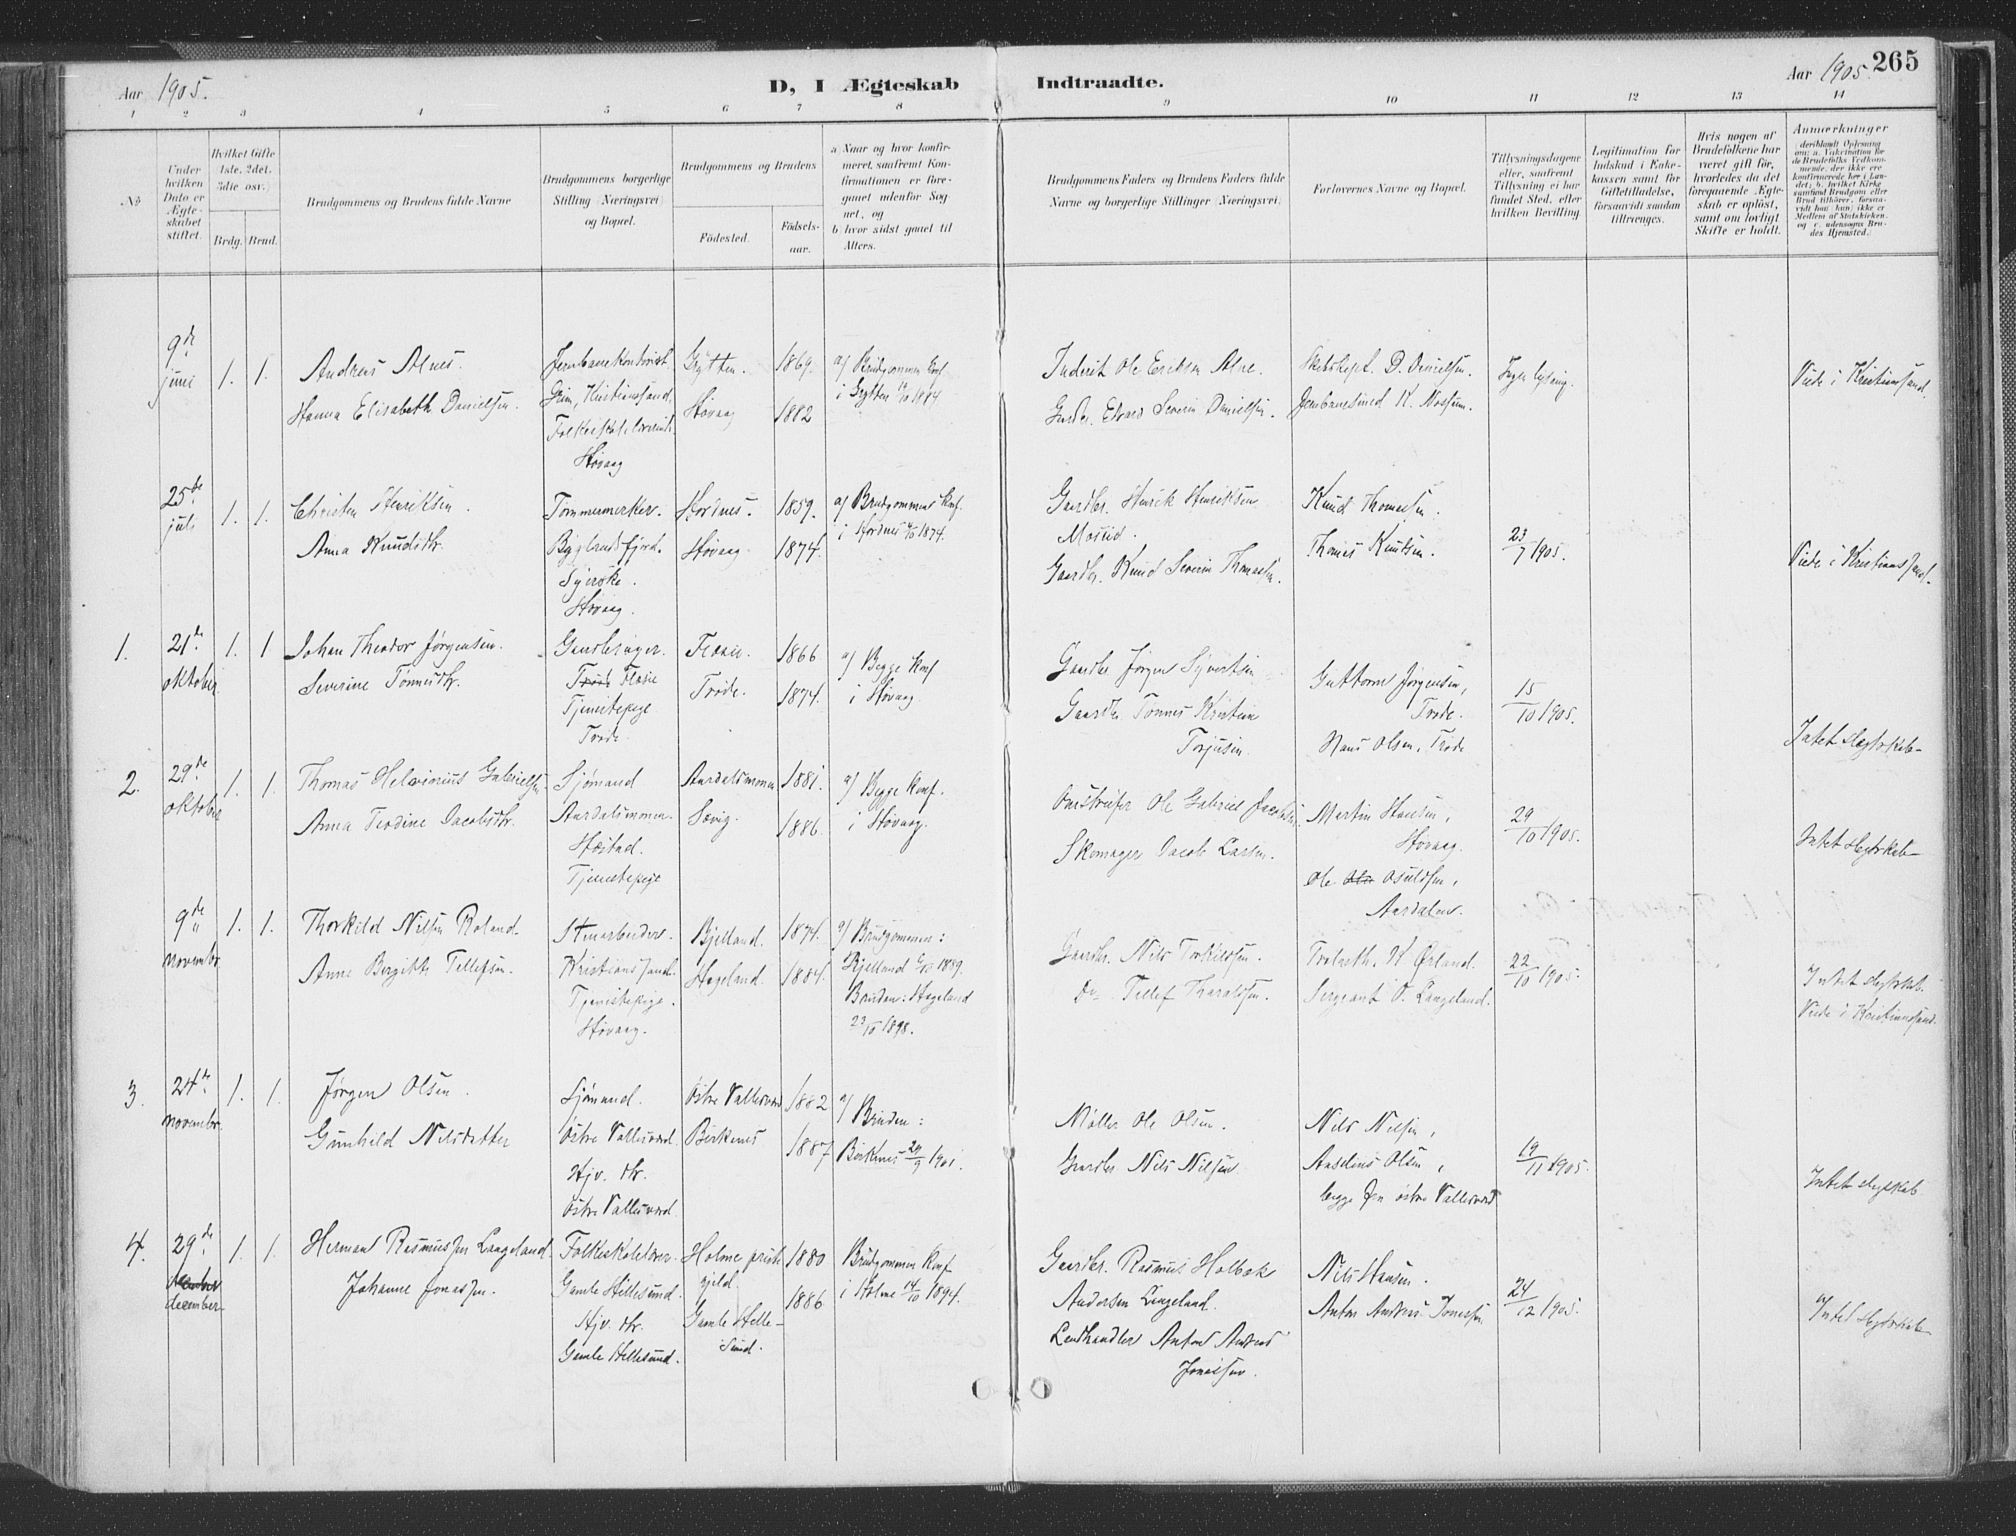 Aar 1905.
D, I Ægteskab Indtraadte.
Aar 1905. 265
1 2 3 4 5 6 7 8 9 10 11 12 13 14
No
Under hvilken Dato er Ægteskabet stiftet.
Hvilket Gifte 1ste. 2det. 3die osv.)
Brdg. Brud.
Brudgommens og Brudens fulde Navne
Brudgommens borgerlige Stilling (Næringsvei) og Bopæl.
Brudgommens og Brudens
Fødested.
Fødselsaar.
a Naar og hvor konfirmeret, saafremt Konfirmationen er foregaaet udenfor Sognet, og
b) hvor sidst gaaet til Alters.
Brudgommens Faders og Brudens Faders fulde Navne og borgerlige Stillinger (Næringsvei)
Forlovernes Navne og Bopæl.
Tillysningsdagene eller, saafremt Tillysning ei har fundet Sted, efter hvilken Bevilling
Legitimation for Indskud i Enkekassen samt for Giftetilladelse, forsaavidt saadan tiltrænges.
Hvis nogen af Brudefolkene har været gift før, hvorledes da det foregaaende Ægteskab er opløst, samt om lovligt Skifte er holdt.
Anmærkninger (deriblandt Oplysning om: a. Vakcination for de Brudefolks Vedkommende, der ikke ere konfirmerede her i Landet; b. hvilket Kirkesamfund Brudgom eller Brud tilhører, forsaavidt han (hun) ikke er Medlem af Statskirken, og c. udensogns Brudes Hjemsted.
9de juni 1. 1.
Andreas Alnes
Hanna Elisabeth Danielsen.
Jernbanekontorist.
Grim, Kristianssand.
Høvaag
Grytten. 1869.
Høvaag 1882
a) Brudgommen Konf.
i Grytten 1884
Ole Eriksen Alne.
Gaardbr. Edvard Severin Danielsen.
Skibskapt. D. Danielsen.
Ingen lysning.
Viede i Kristianssand.
25de juli 1. 1.
Christen Henriksen.
Anna Knudsdtr.
Tømmermerker.
Byglandsfjord.
Syerske.
Høvaag.
Hordnes. 1859.
Høvaag 1874.
a) Brudgommens Konf.
i Hordnes 1874.
Gaardbr. Henrik Henriksen
Gaardbr. Knud Severin Thomassen.
Knud Thomassen.
Thomas Knutsen.
23/7 1905.
Viede i Kristianssand.
1. 21de oktober 1. 1
Johan Theodor Jørgensen.
Severine Tønnesdtr.
Tjenestepige
Trøde.
1866
Trøde. 1874.
a) Begge Konf
i Høvaag.
Gaardbr. Jørgen Syvertsen
Gaardbr. Tønnes Kristian
Torjusen.
Guttorm Jørgensen,
Trøde.
Hans Olsen, Trøde
15/10 1905.
Intet slegtskab
2. 29de oktober 1. 1.
Thomas Helvinius Gabrielsen
Anna Teodine Jacobsdtr.
Sjømand
Aardalsmonen.
Tjenestepige
Aardalsmonen 1881.
Sævig. 1886.
a) Begge Konf.
i Høvaag.
Ole Gabriel Jacobsen
Skomager Jacob Larsen.
Martin Hansen,
Høvaag.
Ole Osuldsen,
Aardalen.
29/10 1905.
Intet slegtskab
9de november 1. 1.
Thorkild Nilsen Roland
Anne Bergitte Tellefsen.
Stenarbeider.
Kristianssand.
Tjenestepige.
Høvaag.
Bjelland. 1874.
Hægeland. 1884.
a) Brudgommen:
Bjelland 1889.
Bruden: Hægeland
23/10 1898.
Gaardbr. Nils Torkildsen.
Do Tellef Tharaldsen.
K. Ørland.
Sergeant O. Langeland.
22/10 1905.
Intet slegtskab.
Viede i Kristianssand.
3. 24de november. 1. 1.
Jørgen Olsen.
Gunhild Nilsdatter
Sjømand.
Østre Vallesværd.
Hjv. dtr.
Østre Vallesværd.
Østre Vallesværd 1882
Birkenes 1887
a) Bruden:
Birkenes 29/9 1901.
Møller Ole Olsen.
Gaardbr Nils Nilsen.
Nils Nilsen,
Anselius Olsen,
begge Østre Vallesværd
19/11 1905.
Intet slegtskab
4. 29de december 1. 1.
Herman Rasmussen Langeland.
Johanne Jonassen.
Folkeskolelærer
Gamle Hellesund.
Hjv. dtr.
Gamle Hellesund.
Holme prestegjeld 1880
Gamle Hellesund. 1886
Brudgommen Konf
i Holme 14/10 1894.
Gaardbr. Rasmus Holbæk
Andersen Langeland.
Landhandler Anton Andreas
Jonassen.
Nils Hansen.
Anton Andreas Jonassen
24/12 1905.
Intet slegtskab